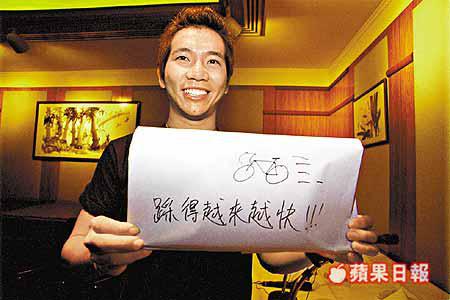 踩得越来越快!!!
蘋果日報